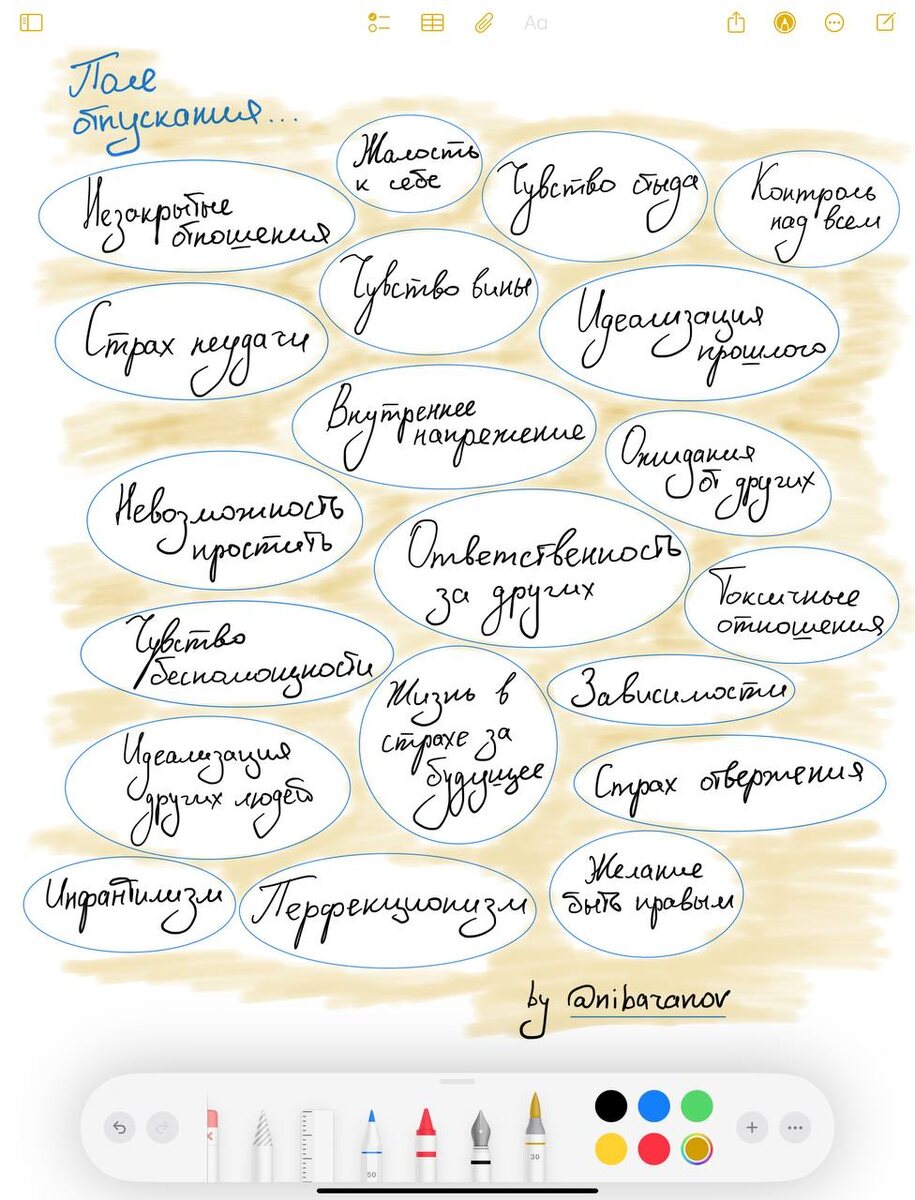 Aa
Поле
отпускания...
Жалость
к себе
Чувство стыда
Контроль
над всем
Незакрытые
отношения
Чувство вины
Страх неудачи
Идеализация
прошлого
Внутреннее
напряжение
Ожидания
от других
Невозможность
простить
Ответственность
за других
Токсичные
отношения
Чувство
беспомощности
Жизнь в
страхе за
будущее
Зависимости
Идеализация
других людей
Страх отвержения
Инфантилизм
Перфекционизм
Желание
быть правым
by @nibaranov
50
30